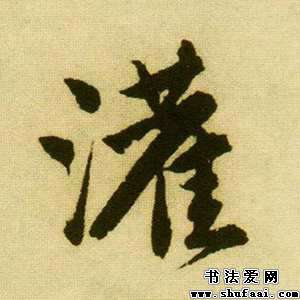 灌
书法爱网
www.shufaai.com